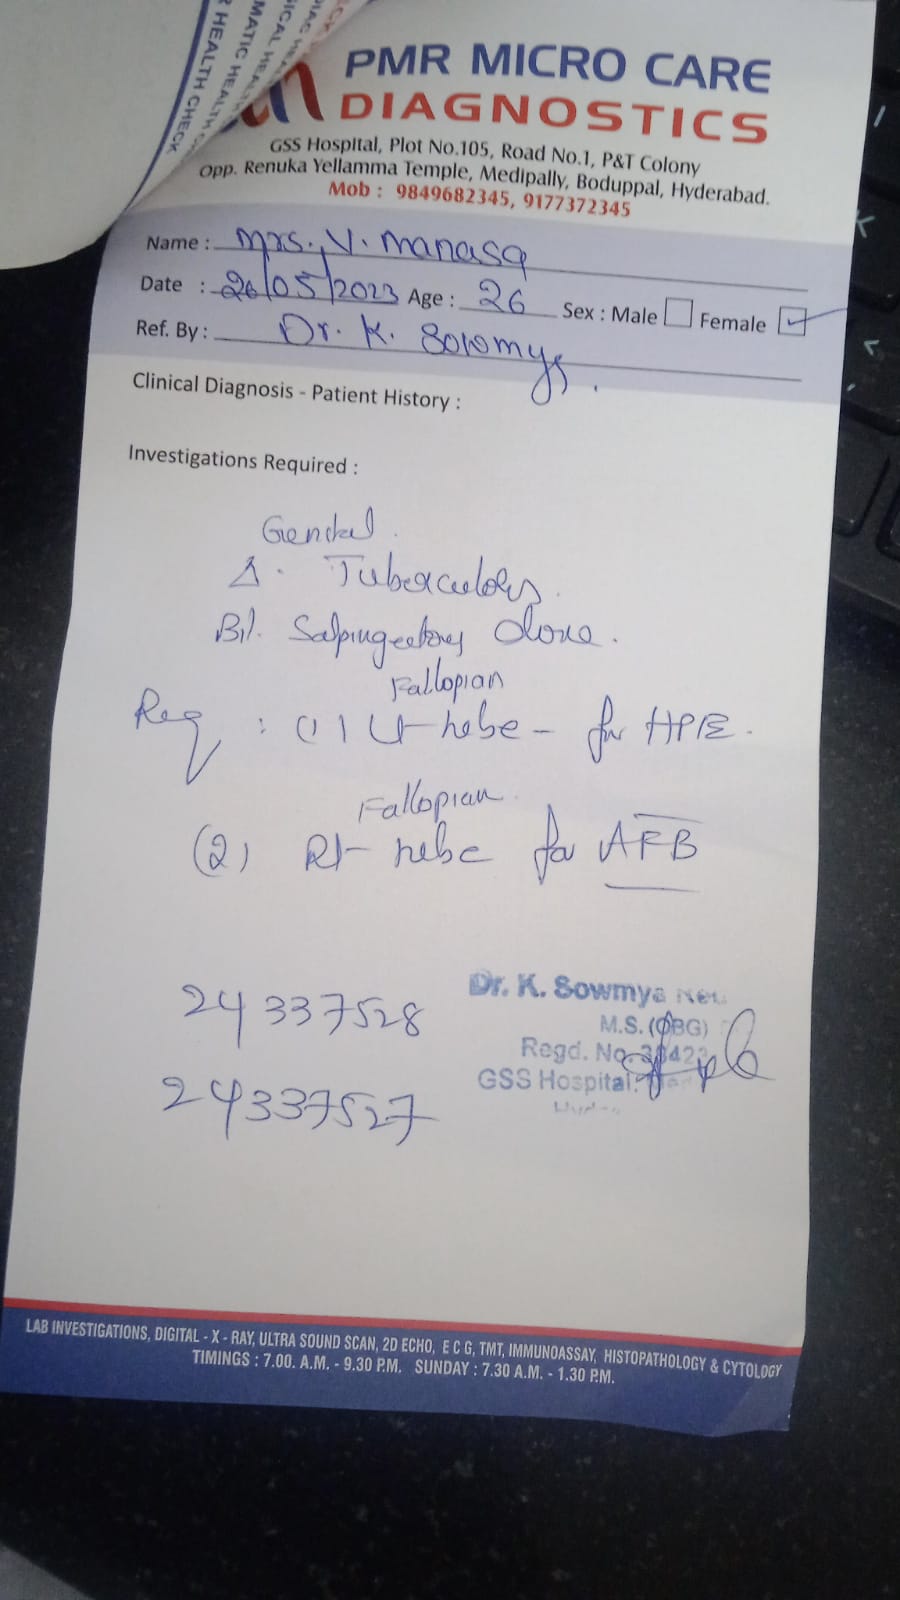 R HEALTH CHECK
MATIC HEALTH
PMR MICRO CARE
DIAGNOSTICS
GSS Hospital, Plot No.105, Road No.1, P&T Colony
Opp. Renuka Yellamma Temple, Medipally, Boduppal, Hyderabad.
Mob : 9849682345, 9177372345
Name : Mrs. V. Manasa
Date : 26/05/2023 Age : 26 Sex : Male Female
Ref. By : Dr. K. Sowmya.
Clinical Diagnosis - Patient History :
Investigations Required :
Genital
Δ. Tuberculosis.
B/l. Salpingectomy done.
Fallopian
Req : (1) Lt tube - for HPE.
Fallopian
(2) Rt tube for AFB
24337528
24337527
Dr. K. Sowmya
M.S. (OBG)
Regd. No.
GSS Hospital
LAB INVESTIGATIONS, DIGITAL - X - RAY, ULTRA SOUND SCAN, 2D ECHO, E C G, TMT, IMMUNOASSAY, HISTOPATHOLOGY & CYTOLOGY
TIMINGS : 7.00. A.M. - 9.30 P.M. SUNDAY : 7.30 A.M. - 1.30 P.M.